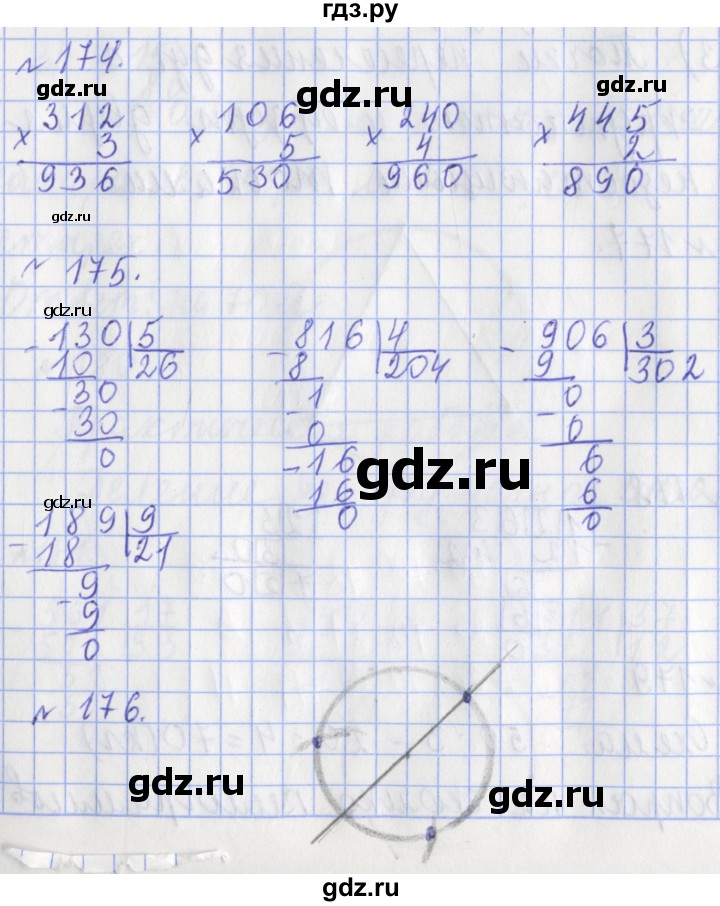 гдз.ру
№ 174.
gdz.ru gdz.ru gdz.ru
312 106 240 445
× 3 × 5 × 4 × 2
936 530 960 890
gdz.ru
№ 175.
gdz.ru
- 130 5 - 816 4 - 906 3
10 26 8 204 9 302
- 30 - 1 - 0
30 0 0
0 - 16 6
gdz.ru
16 6
0 0
gdz.ru
- 189 9
18 21
- 9
9
0
№ 176.
gdz.ru gdz.ru
gdz.ru